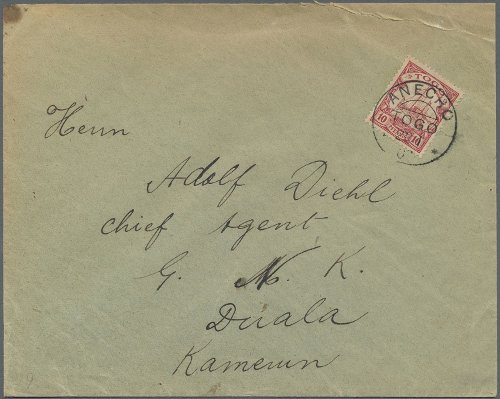 TOGO
ANECHO
TOGO
10 10
Herrn
Adolf Diehl
chief Agent
G. N. K.
Duala
Kamerun